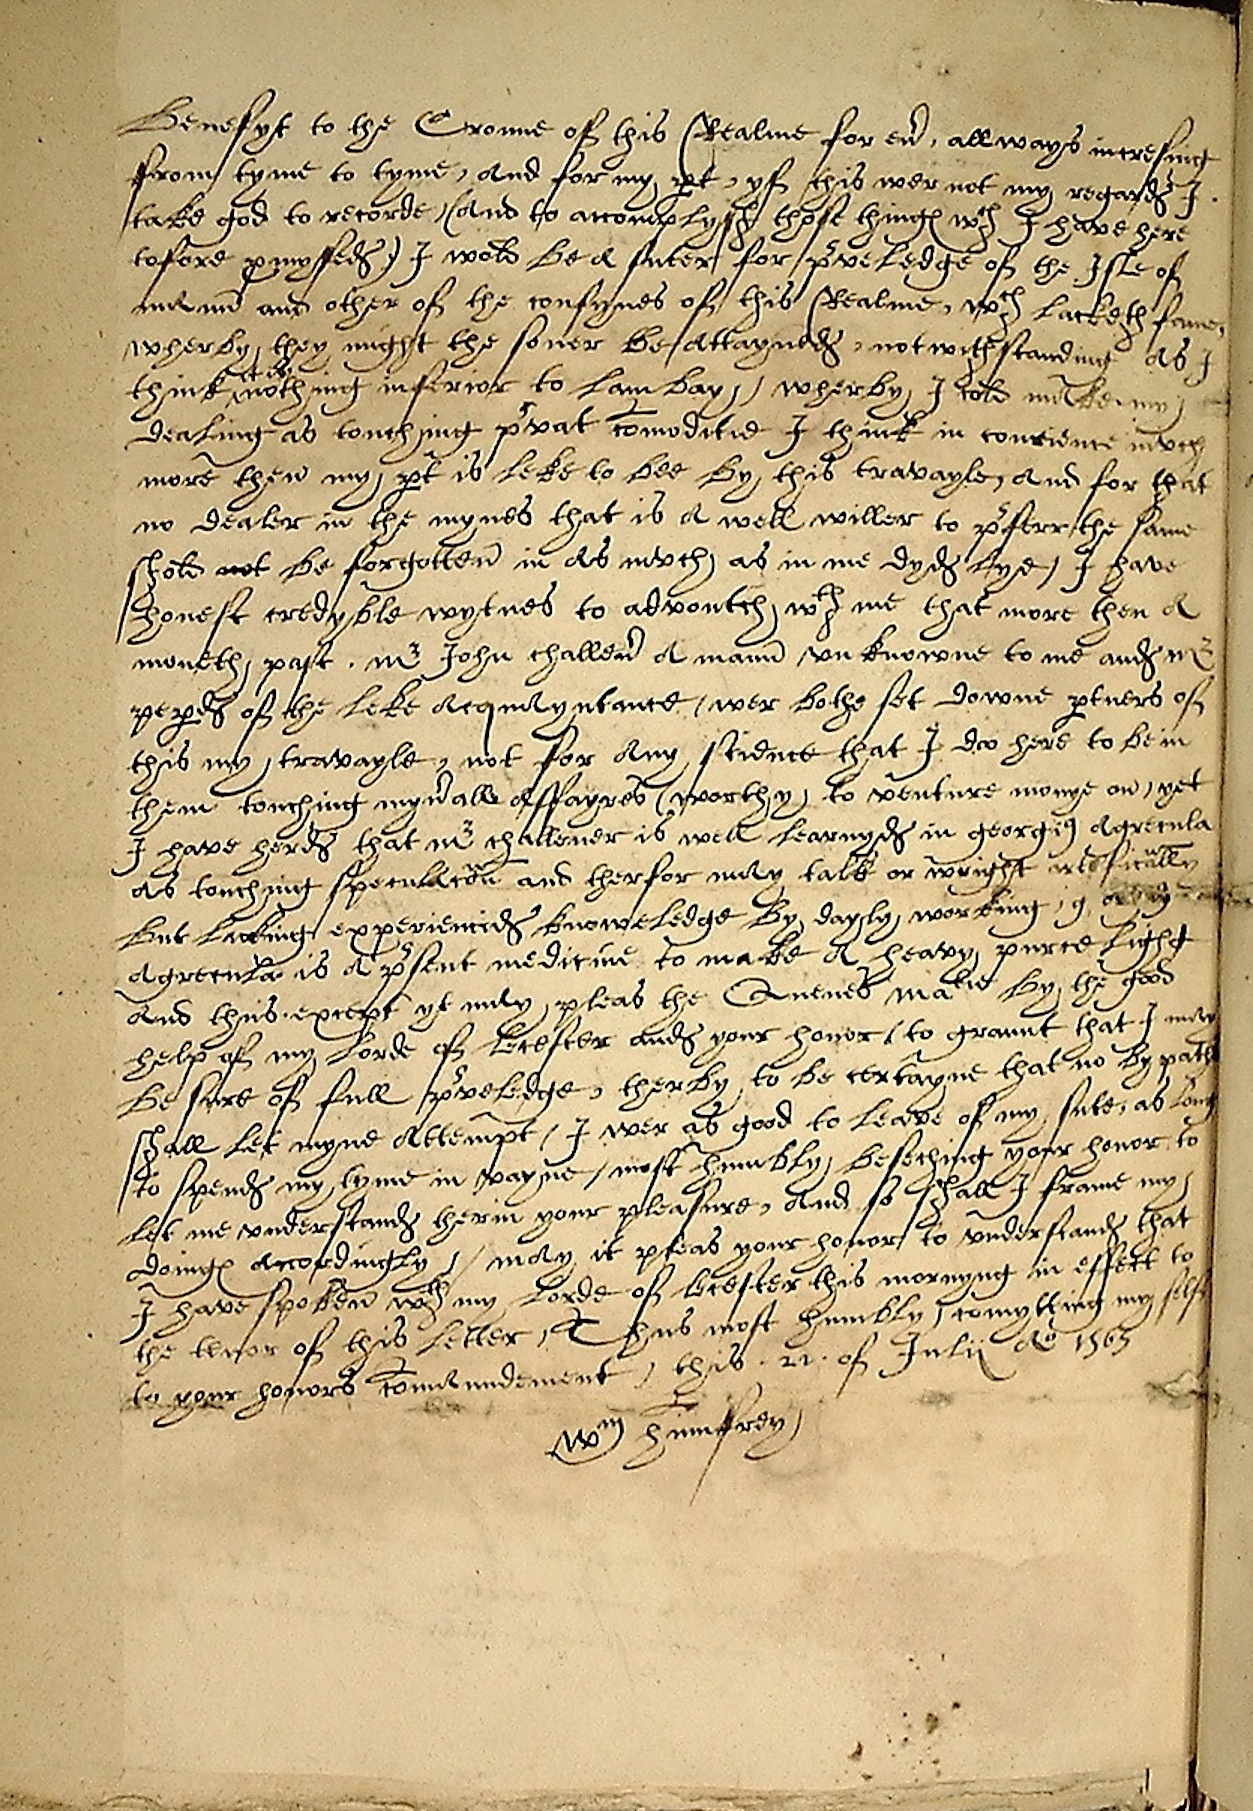 Benefyt to the Crowne of this Realme for eu', allways incresing
from tyme to tyme, And for my pt, yf this wer not my regard I
take god to recorde, (And to accomplyssh those things wch I have here
tofore pmyssed) I wold be A suter for p'veledge of the Isle of
mann and other of the confynes of this Realme, wch lacketh fame,
wherby they might the soner be Attayned, notwithstanding As I
think nothing inferior to lambay, wherby I cold make my
dealing as touching p'vat comoditie I think in concience mvch
more then my pt is leke to bee by this travayle, And for that
no dealer in the mynes that is A well willer to p'ferr the same
shold not be forgotten in As mvch as in me dyd lye, I have
honest credyble wytnes to advoutch wth me that more then A
moneth past. mr John challen' A mann vnknowne to me and mr
of the leke Acqmayntance, wer bothe set downe ptners of
this my travayle, not for Any that I do here to be in
them touching myn'all Affayres (worthy) to venture monye on, yet
I have herd that mr challener is well learnyd in georgi9 Agrecula
As touching speculacon and therfor may talk or wright artificially
but lacking experiencid knoweledge by dayly working, g
Agrecula is A p'sent medicine to make A heavy purce light
And thus except yt may pleas the Quenes matie by the good
help of my Lorde of Lecester and your honor (to graunt that I may
be sure of full p'veledge, therby to be certayne that no by path
shall let myne Attempt, I wer as good to leave of my sute, as long
to spend my tyme in vayne, most humbly beseching your honor to
let me vnderstand therin your pleasure, And so shall I frame my
doings Accordingly, / may it pleas your honor to vnderstand that
I have spoken wth my Lorde of Lecester this mornyng in effect to
the tenor of this letter, Thus most humbly comytting my self
to your honors Comaundement, this . 22 . of Julii Ao 1565
Wm Humfrey